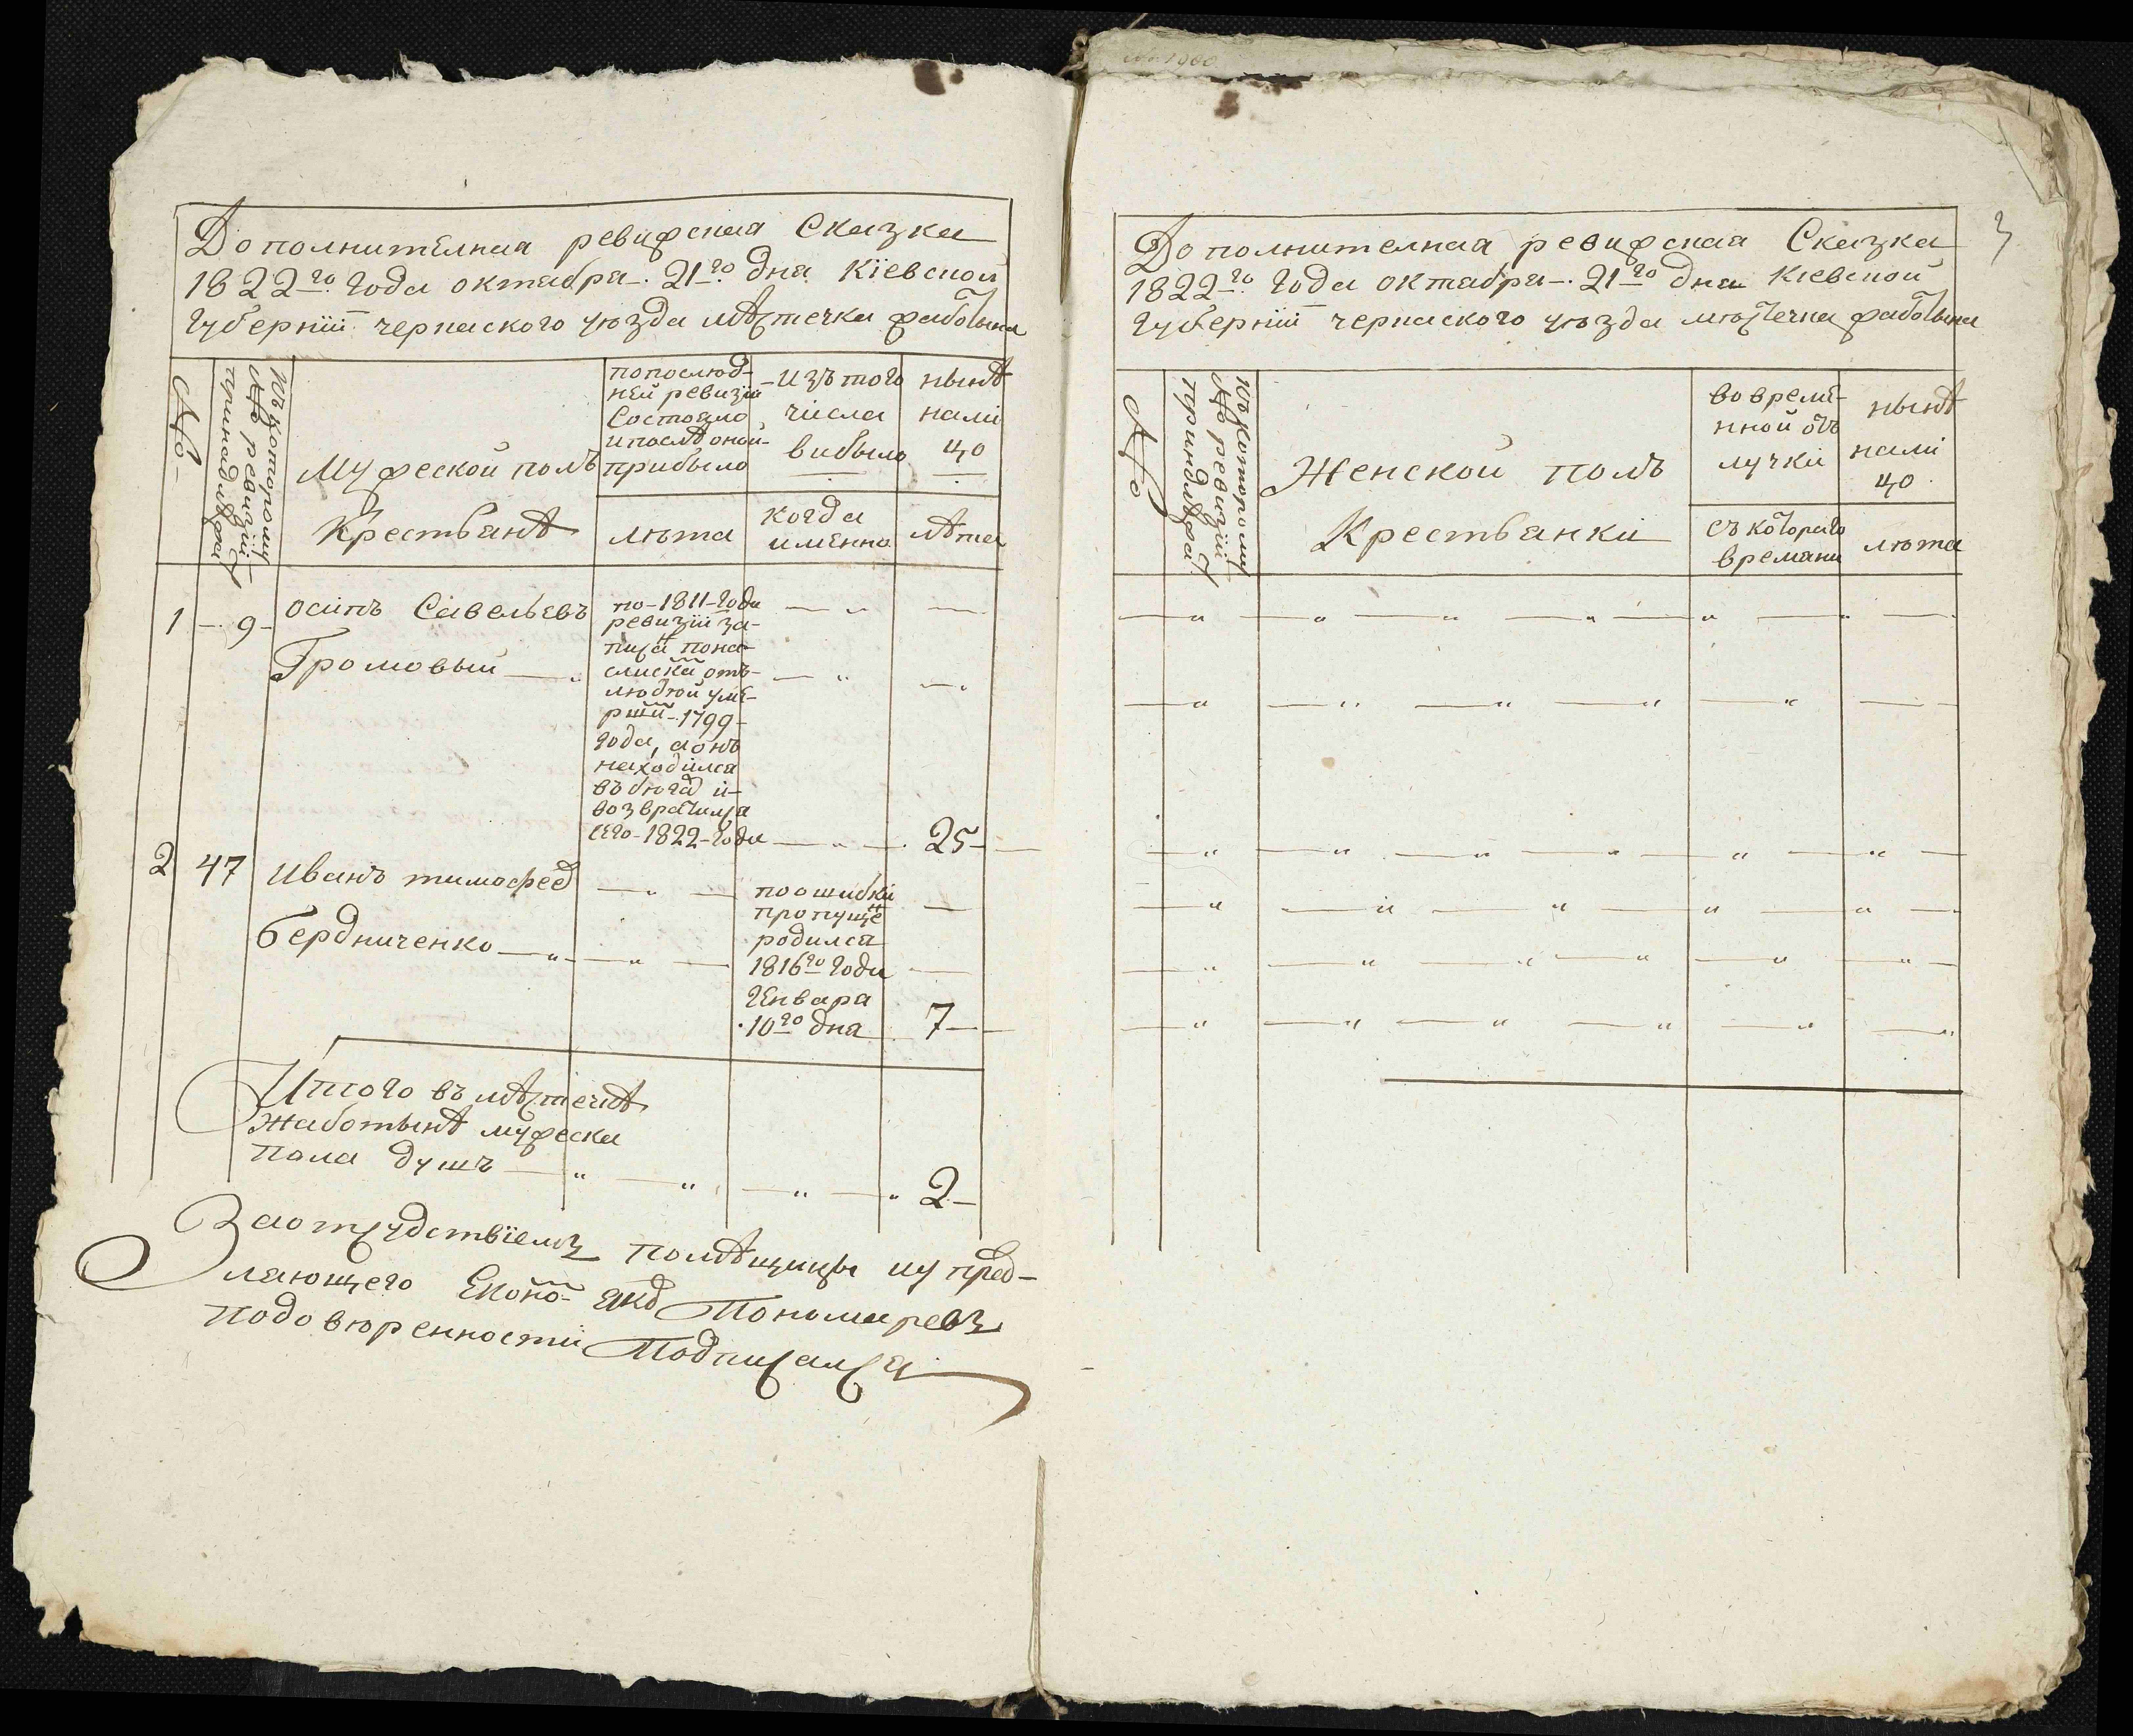 Дополнителная ревизская Сказка
1822го года октабра 21го дна Кіевской
губерніи черкаского уезда мѣстечка жаботына
№
къ которому
№ ревизіи
принадлежа
Мужеской полъ
Крестьянѣ
попослед-
ней ревизіи
Состояло
и послѣ оной
прибыло
лета
изъ того
числа
вибыло
когда
именно
нынѣ
нали
цо
лѣта
1 9 осипъ Савельевъ
Громовый
по 1811 года
ревизіи за-
писа
отъ-
уме-
рший 1799
года, а онъ
находилса
въ бѣгах и
возвратился
сего 1822 года
25
2 47 Иванъ тимофеев
Бердниченко
по ошибки
пропуще
родилса
1816го года
Генвара
10го дна
7
Итого въ мѣстечкѣ
Жаботынѣ мужеска
пола душъ 2
За отсудствіемъ помѣщицы и у прав-
ляющего Еконо Пономаревъ
по доверенности Подписался
3
Дополнителная ревизская Сказка
1822го года октабра 21го дна Кіевской
губерніи черкаского уезда местечка жаботына
№
къ которому
№ ревизіи
принадлежа
Женской полъ
Крестьянки
во време-
нной отъ
лучки
съ которого
времани
нынѣ
нали
цо
лета